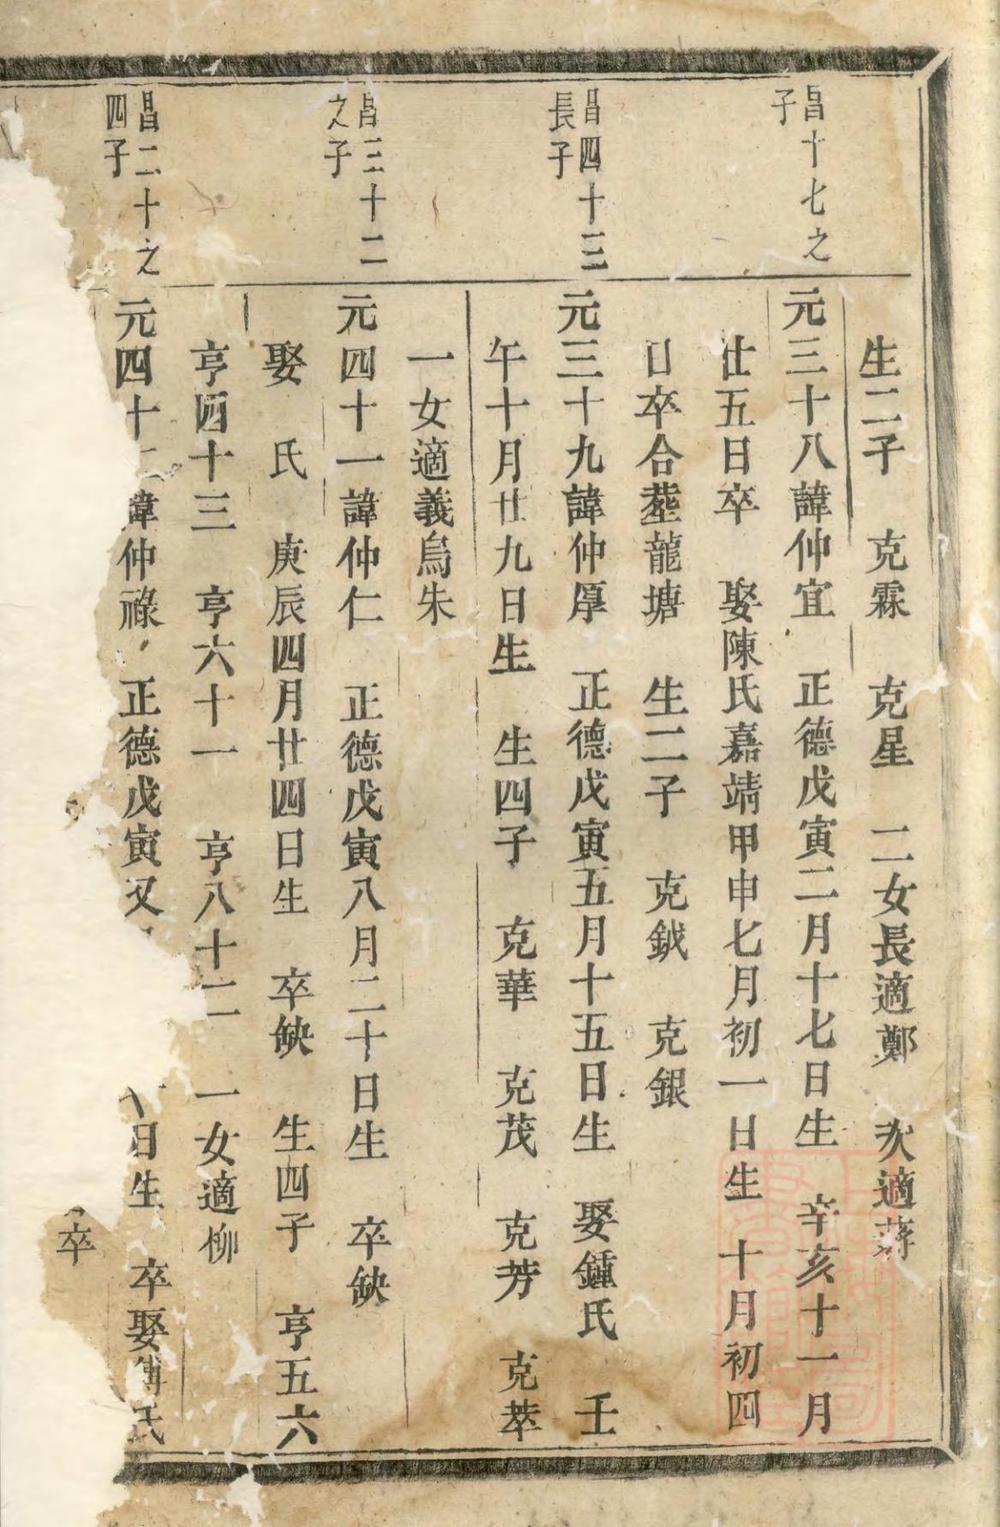 生二子 克霖 克星 二女長適鄭 次適蔣
昌十七之
子
元三十八諱仲宜 正德戊寅二月十七日生 辛亥十一月
廿五日卒 娶陳氏嘉靖甲申七月初一日生 十月初四
日卒合塟龍塘 生二子 克鉞 克銀
昌四十三
長子
元三十九諱仲厚 正德戊寅五月十五日生 娶鍾氏 壬
午十月廿九日生 生四子 克華 克茂 克芳 克萃
一女適義烏朱
昌三十二
之子
元四十一諱仲仁 正德戊寅八月二十日生 卒缺
娶 氏 庚辰四月廿四日生 卒缺 生四子 亨五六
亨四十三 亨六十一 亨八十二 一女適柳
昌二十之
四子
元四十二諱仲祿 正德戊寅又 日生 卒娶傅氏
卒